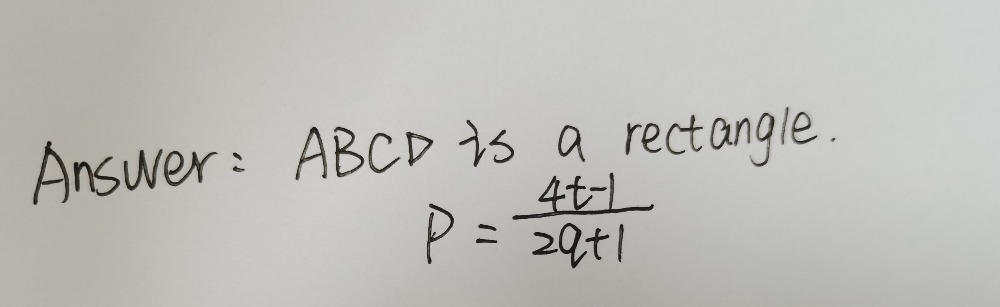 Answer: ABCD is a rectangle.
P = \frac{4t-1}{2q+1}